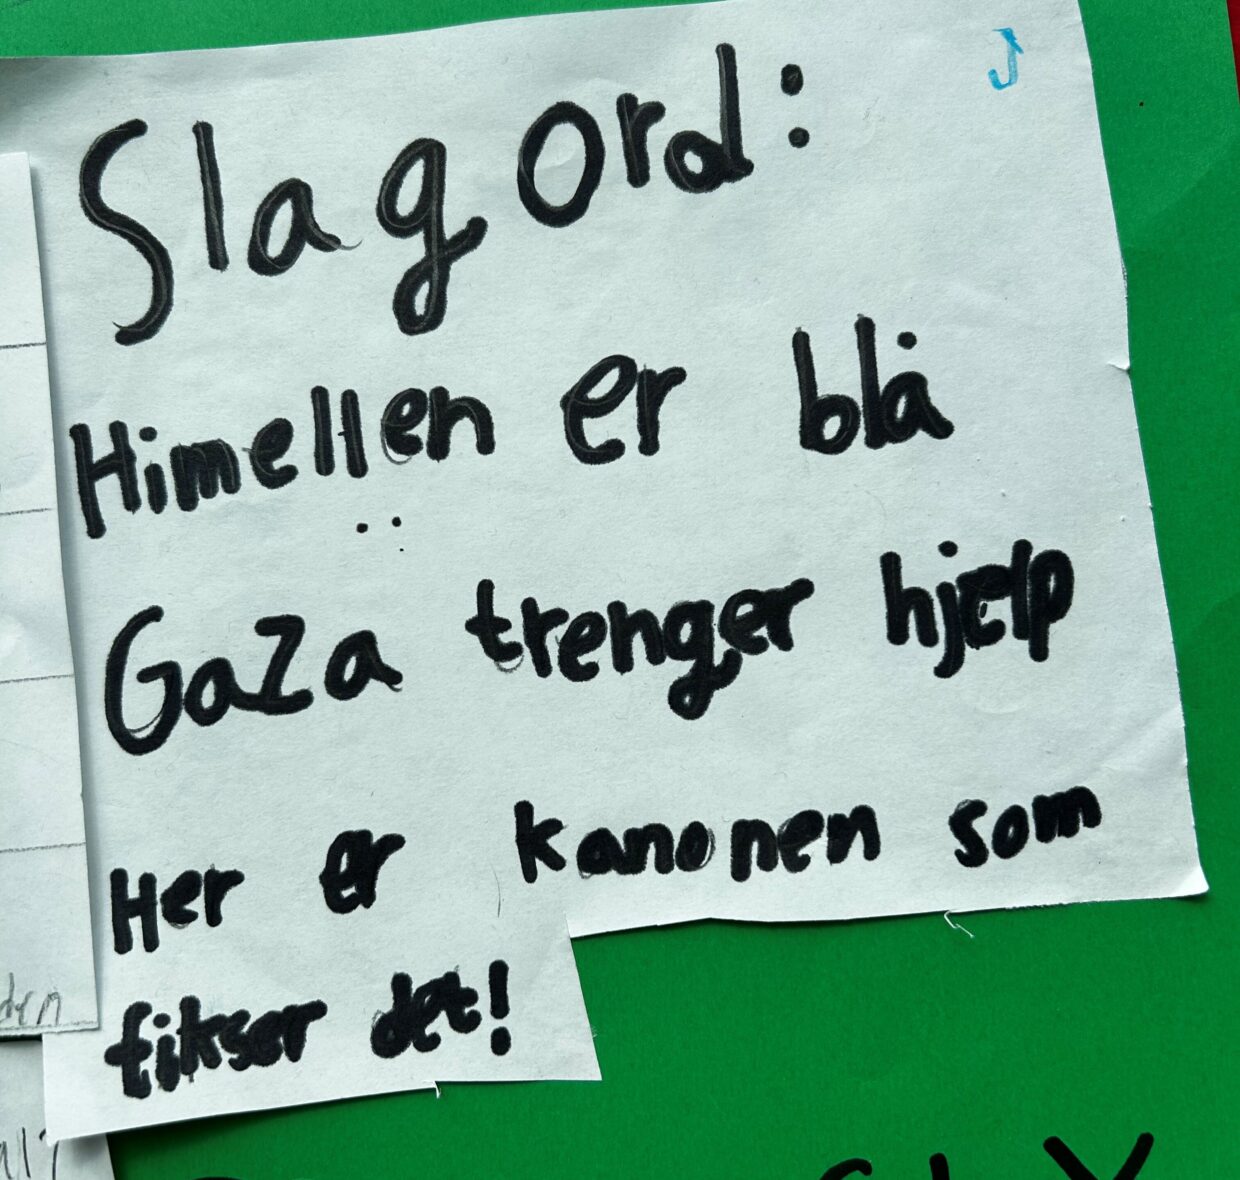 Slag ord:
Himellen er blå
Gaza trenger hjelp
Her er kanonen som
fikser det!